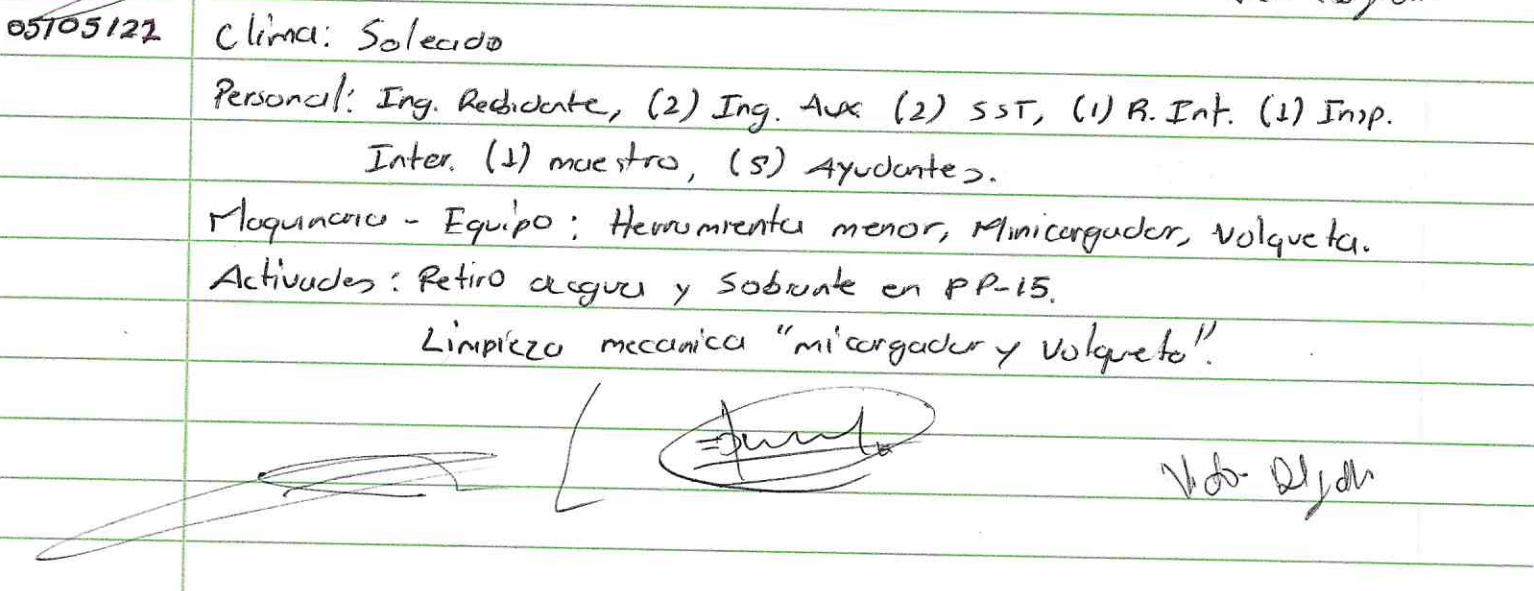 05/05/22
Clima: Soleado
Personal: Ing. Residente, (2) Ing. Aux (2) SST, (1) R. Int. (1) Insp.
Inter. (1) maestro, (5) Ayudantes.
Maquinaria - Equipo: Herramienta menor, Minicargador, Volqueta.
Activades: Retiro acgua y Sobrante en PP-15.
Limpieza mecanica "micargador y Volqueta".